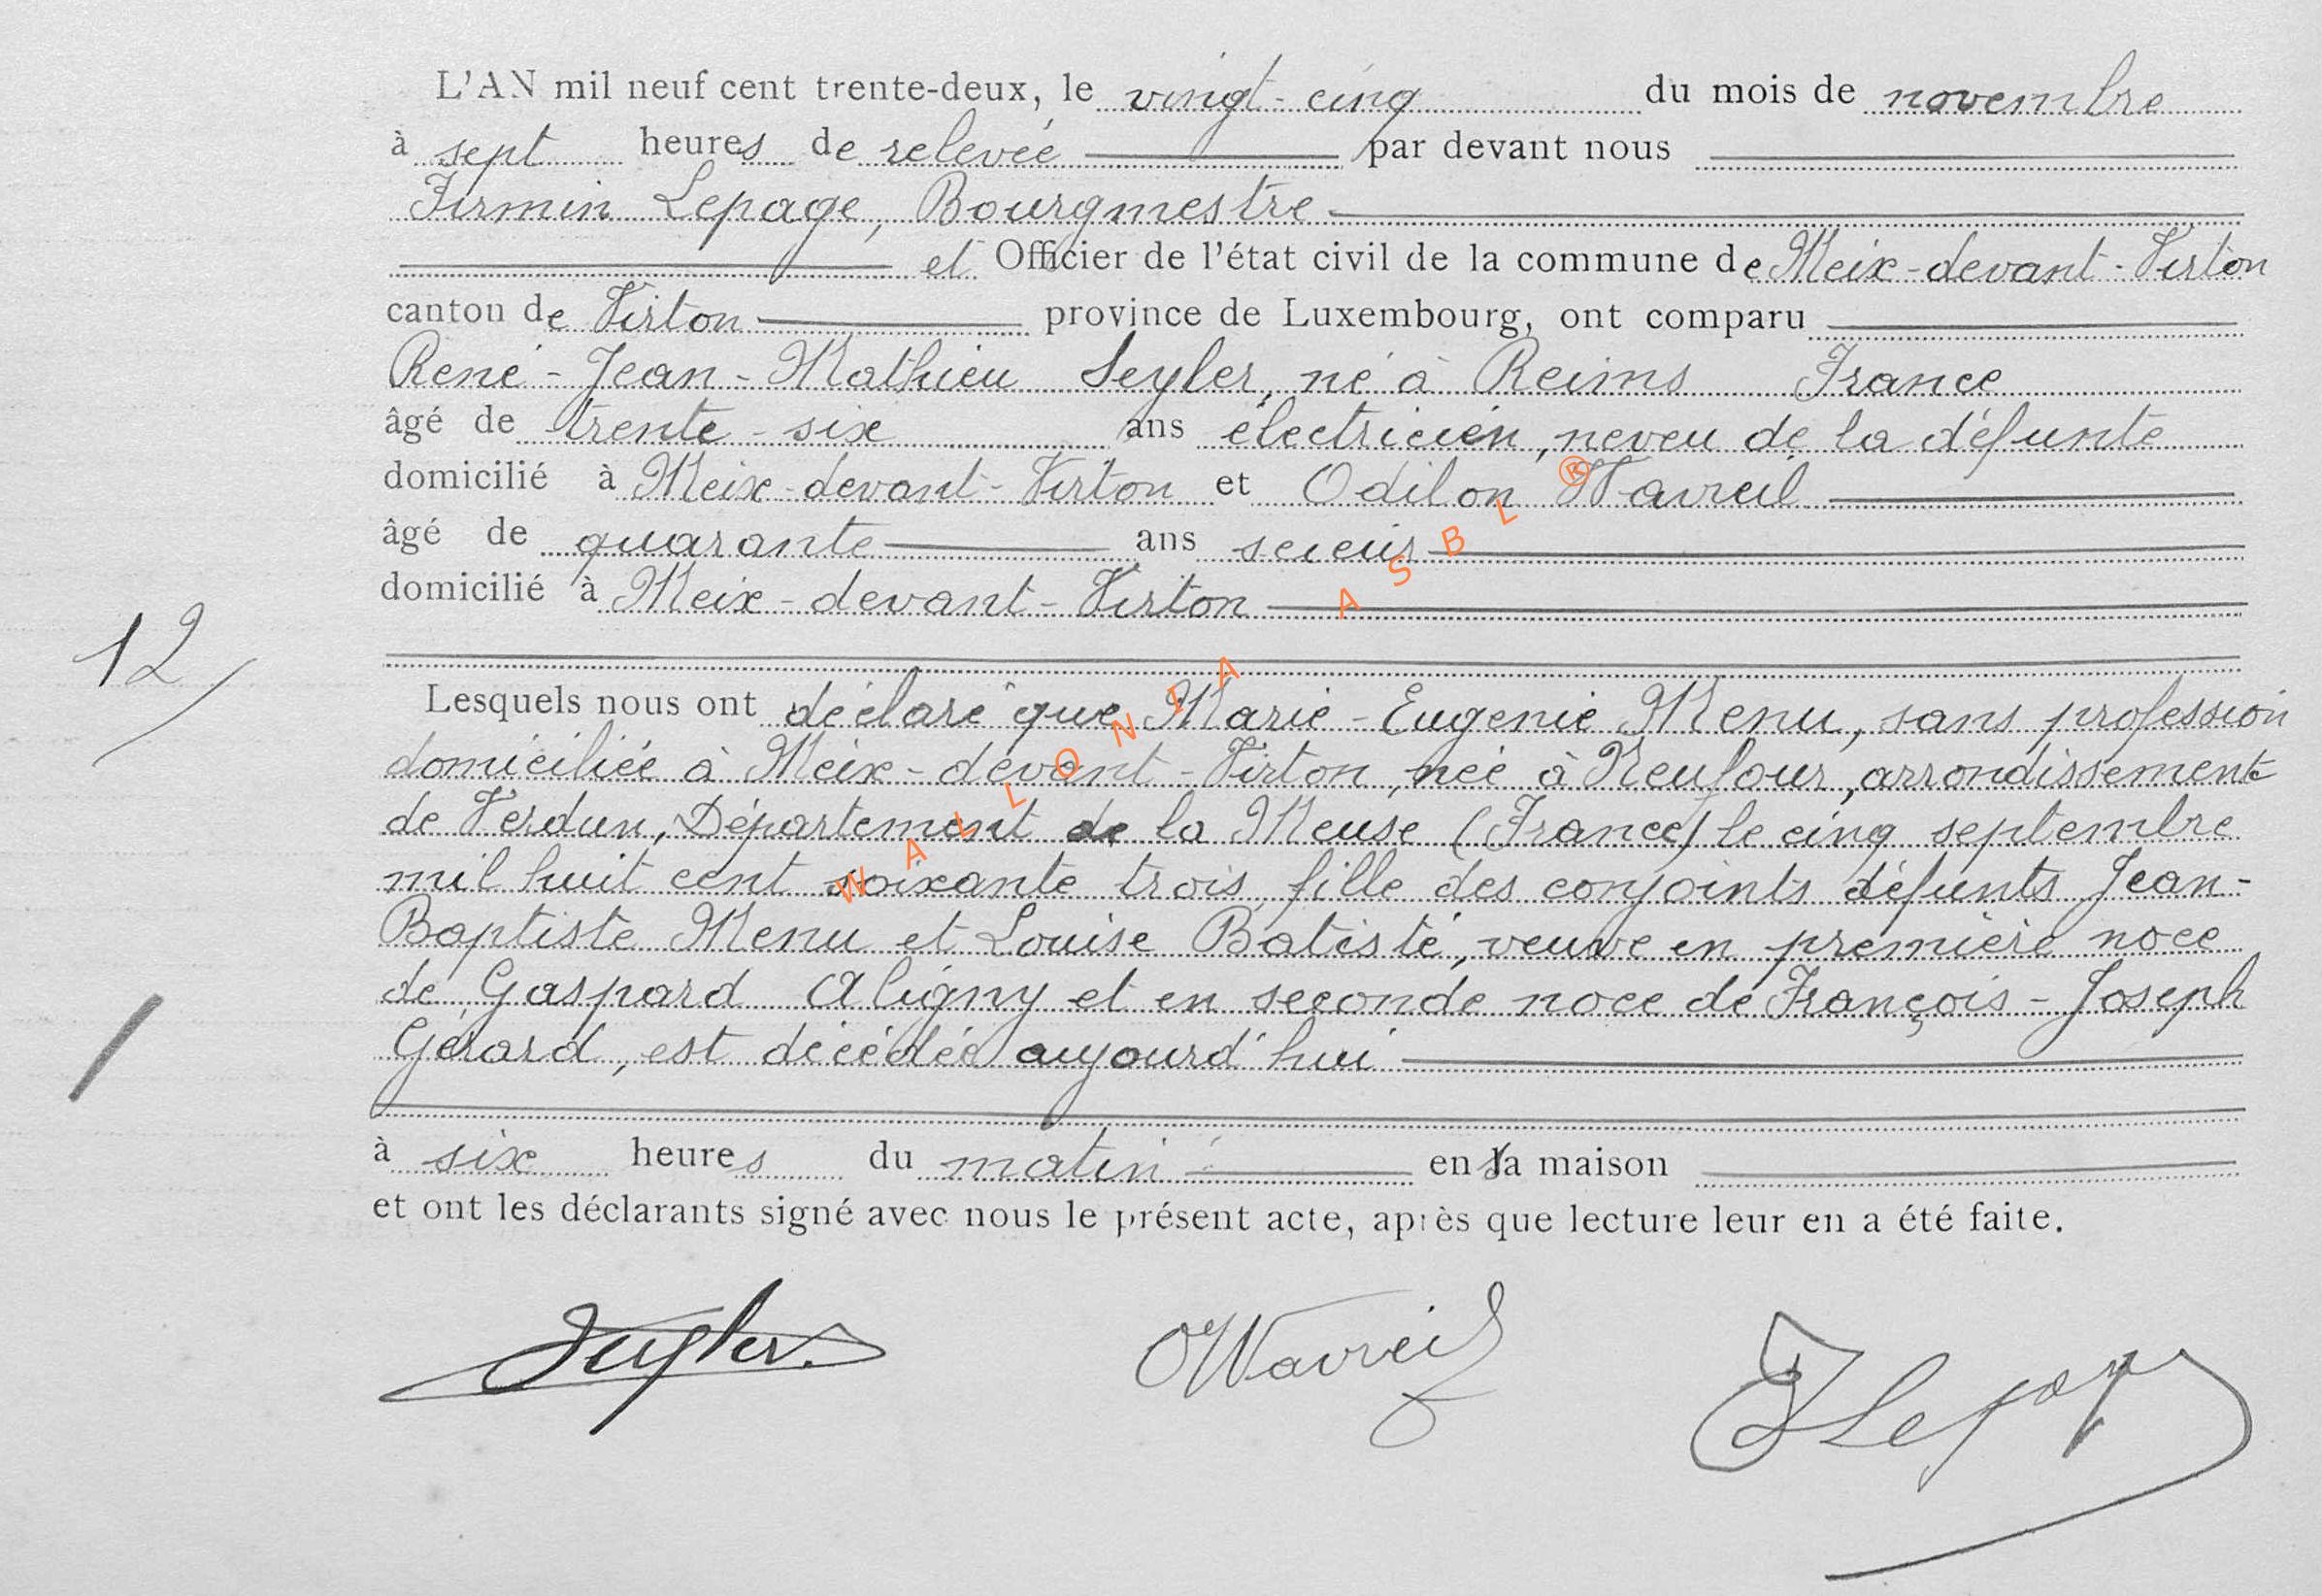 L'AN mil neuf cent trente-deux, le vingt-cinq du mois de novembre
à sept heures de relevée par devant nous
Firmin Lepage, Bourgmestre
et Officier de l'état civil de la commune de Meix-devant-Virton
canton de Virton province de Luxembourg, ont comparu
René-Jean-Mathieu Seyler, né à Reims France
âgé de trente-six ans électricien, neveu de la défunte
domicilié à Meix-devant-Virton et Odilon Wavreil
âgé de quarante ans scieur
domicilié à Meix-devant-Virton
12
Lesquels nous ont déclaré que Marie-Eugenie Menu, sans profession
domiciliée à Meix-devant-Virton, née à Neufour, arrondissement
de Verdun, Département de la Meuse (France) le cinq septembre
mil huit cent soixante trois, fille des conjoints défunts Jean-
Baptiste Menu et Louise Batisté, veuve en première noce
de Gaspard Aligny et en seconde noce de François-Joseph
Gérard, est décédée aujourd'hui
à six heures du matin en sa maison
et ont les déclarants signé avec nous le présent acte, après que lecture leur en a été faite.
Seyler. OWavreil FLepage
WALLONIA ASBL ®